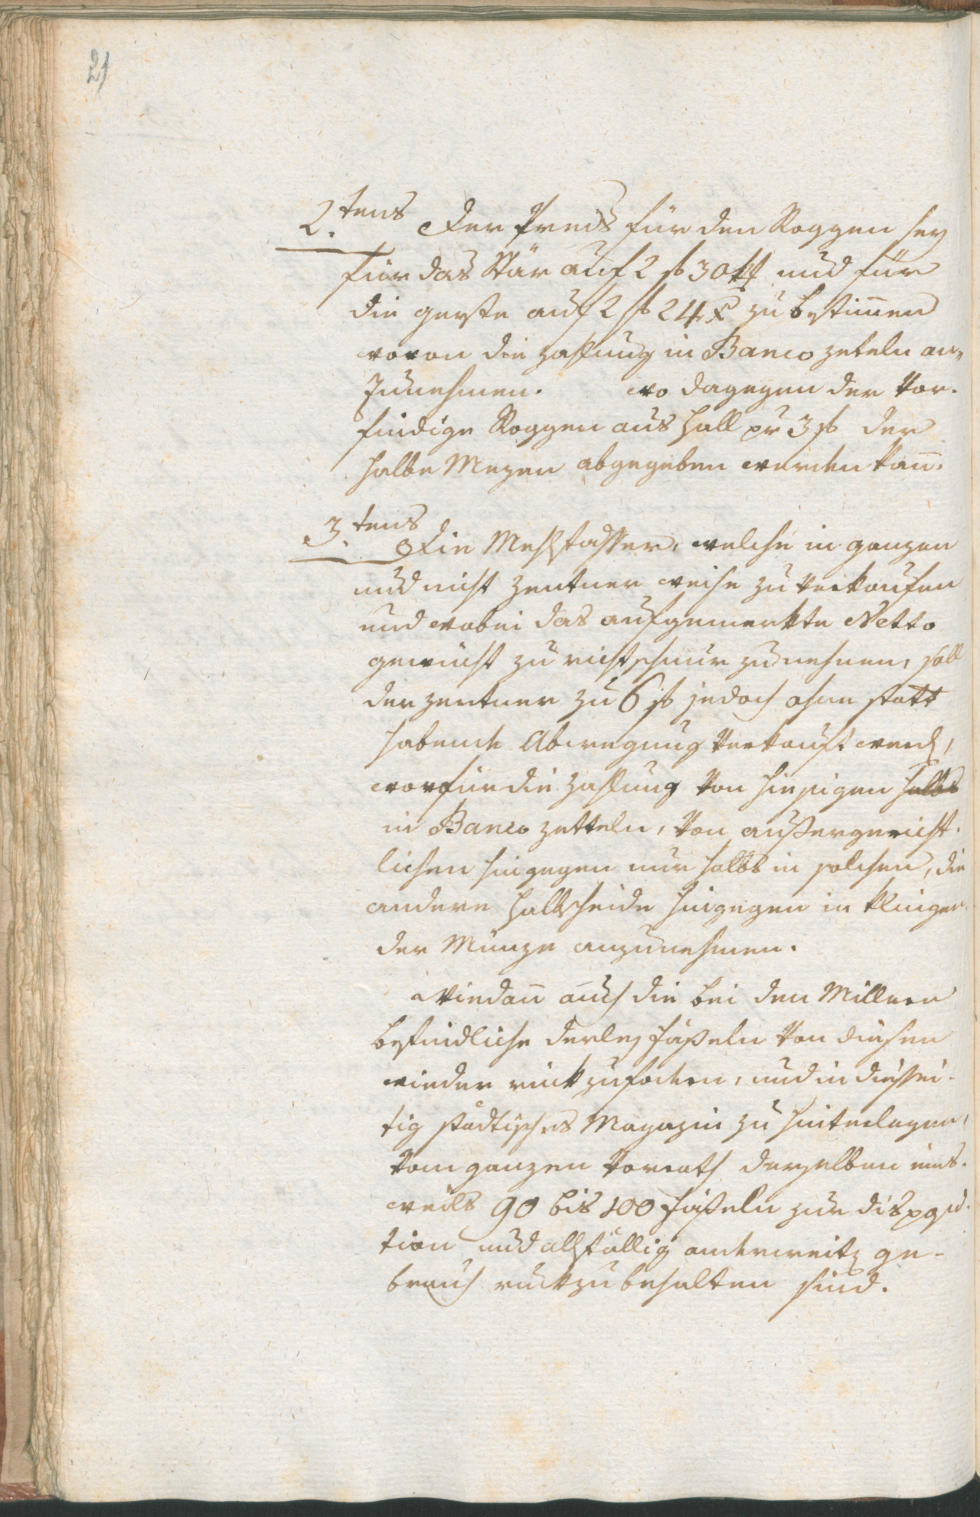 21
2.tens Der Preis für den Roggen sey
für das Stär auf 2 f 30 xr und für
die gerste auf 2 f 24 x zu bestimen
wovon die zahlung in Banco zeteln an„
zunehmen. wo dagegen der vor-
findige Roggen aus Hall pr 3 f der
halbe Mezen abgegeben werden kan̄.
3.tens Die Mehlfässer, welche in ganzen
und nicht zentner weise zu verkaufen
und wobei das aufgemerkte Netto
gewicht zu richtschnur zu nehmen, soll
der zentner zu 6 f jedoch ohne statt
habende Abwegung verkauft werd,
worfür die zahlung von hiesigen halbs
in Banco zetteln, von außergericht-
lichen hingegen nur halbs in solchen, die
andere halbscheide hingegen in klingen-
der Münze anzunehmen.
Wiedan̄ auch die bei den Millern
befindliche derley fäßeln von diesen
wieder rükzufodern, und in diessei-
tig städtisches Magazin zu hinterlegen,
vom ganzen Vorrath derselben eins-
weils 90 bis 100 fäßeln zur disposi-
tion und allfällig anderweitig ge-
brauch rükzubehalten sind.